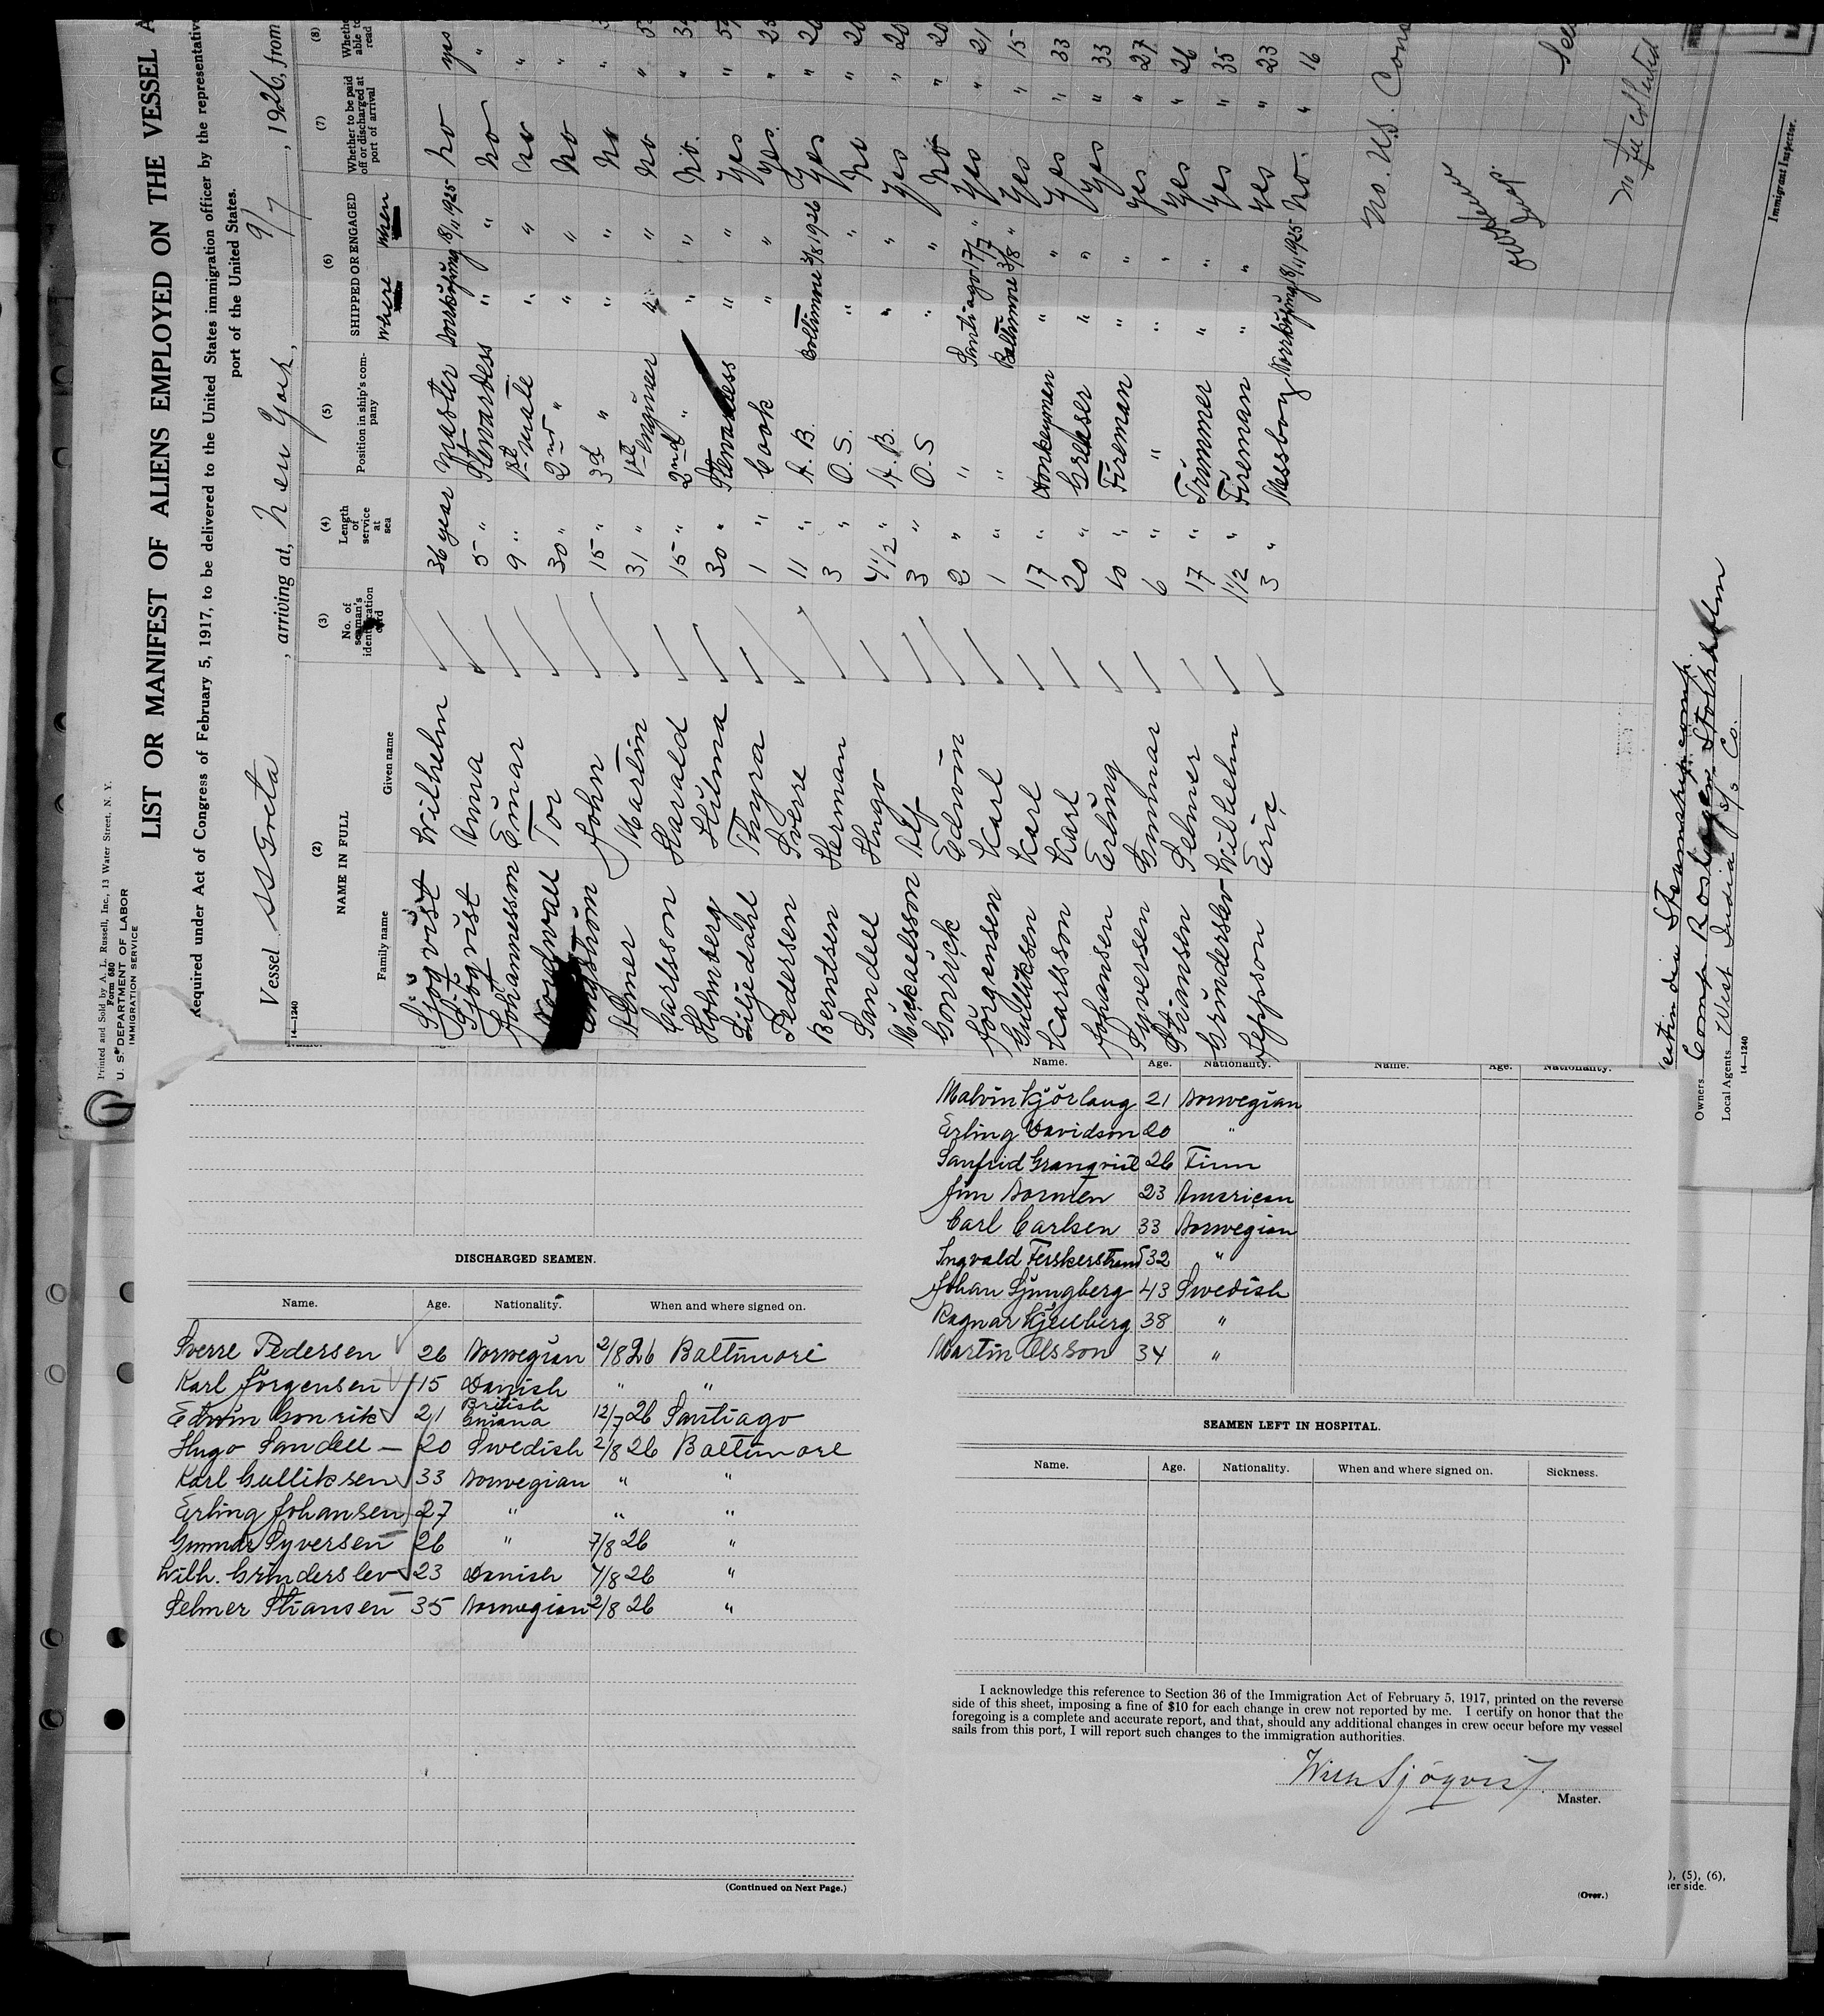 Printed and Sold by A. L. Russell, Inc., 13 Water Street, N. Y.
Form 680
U. S. DEPARTMENT OF LABOR
IMMIGRATION SERVICE
LIST OR MANIFEST OF ALIENS EMPLOYED ON THE VESSEL A
Required under Act of Congress of February 5, 1917, to be delivered to the United States immigration officer by the representative
port of the United States.
Vessel SS Greta, arriving at, New York, 9/7, 1926, from
14—1240
(2) (3) (4) (5) (6) (7) (8)
NAME IN FULL
Family name Given name
No. of seaman's identification card
Length of service at sea
Position in ship's company
SHIPPED OR ENGAGED
Where When
Whether to be paid off or discharged at port of arrival
Whether able to read
Sjöqvist Wilhelm 36 year Master 8/11 1925 no yes
Sjöqvist Anna 5 " Stewardess " " no "
Johannesson Einar 9 " 1st mate " " no "
Tor 30 " 2nd " " " no "
Engström John 15 " 3d " " " no "
Almer Martin 31 " 1st Engineer " " no "
Carlsson Harald 15 " 2nd " " " no. "
Holmberg Hilma 30 " Stewardess " " yes "
Liljedahl Thyra 1 " Cook " " yes. "
Pedersen Sverre 11 " A. B. Baltimore 3/8 1926 yes " 26
Berntsen Herman 3 " O. S. " " no " 20
Sandell Hugo 4 1/2 " A. B. " " yes " 20
Mickaelsson Alf 3 " O. S " " no " 20
Gonrick Edwin 2 " " Santiago 17/7 " yes " 21
Jörgensen Karl 1 " " Baltimore 3/8 " yes " 15
Gulliksen Karl 17 " Donkeyman " " yes " 33
Karlsson Karl 20 " Greaser " " yes " 33
Johansen Erling 10 " Fireman " " yes " 27
Syversen Gunnar 6 " " " " yes " 26
Stiansen Selmer 17 " Trimmer " " yes " 35
Grinderslev Wilhelm 1 1/2 " Fireman " " yes " 23
Jeppson Eric 3 " Messboy 8/11 1925 no. " 16
No. US. Cons
no fee collected
Immigrant Inspector.
Owners Comp. Rosläger Stockholm
Local Agents West India S/S Co.
14—1240
DISCHARGED SEAMEN.
Name. Age. Nationality. When and where signed on.
Sverre Pedersen 26 Norwegian 2/8 26 Baltimore
Karl Jörgensen 15 Danish " "
Edwin Gonrik 21 British Guiana 12/7 26 Santiago
Hugo Sandell — 20 Swedish 2/8 26 Baltimore
Karl Gulliksen 33 Norwegian " "
Erling Johansen 27 " " "
Gunnar Syversen 26 " 7/8 26 "
Wilh. Grinderslev 23 Danish 7/8 26 "
Selmer Stiansen 35 Norwegian 2/8 26 "
(Continued on Next Page.)
Name. Age. Nationality. Name. Age. Nationality.
Malvin Kjörlaug 21 Norwegian
Erling Davidson 20 "
Sanfrid Granqvist 26 Finn
Jim 23 American
Carl Carlsen 33 Norwegian
Ingvald Fiskerstrand 32 "
Johan Ljungberg 43 Swedish
Ragnar Kjellberg 38 "
Martin Olsson 34 "
SEAMEN LEFT IN HOSPITAL.
Name. Age. Nationality. When and where signed on. Sickness.
I acknowledge this reference to Section 36 of the Immigration Act of February 5, 1917, printed on the reverse
side of this sheet, imposing a fine of $10 for each change in crew not reported by me. I certify on honor that the
foregoing is a complete and accurate report, and that, should any additional changes in crew occur before my vessel
sails from this port, I will report such changes to the immigration authorities.
Wilh Sjöqvist
Master.
(Over.)
), (5), (6),
her side.